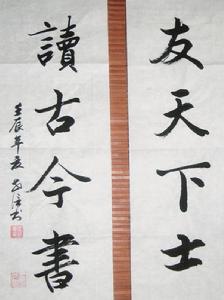 友天下士
讀古今書
壬辰年夏